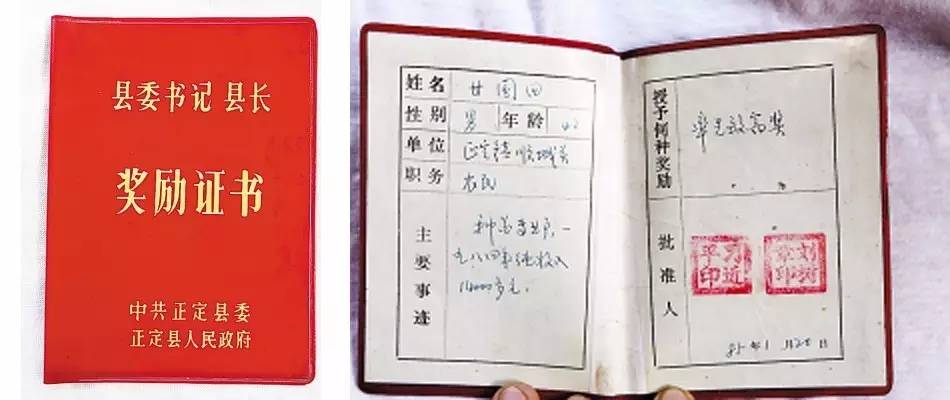 县委书记 县长
奖励证书
中共正定县委
正定县人民政府
姓名 甘国田
性别 男 年龄 42
单位 正定县顺城关
职务 农民
主要事迹
种花专业户,一
九八四年纯收入
14000多元。
授予何种奖励
率先致富奖
批准人
习近平印
刘树章印
85年1月20日